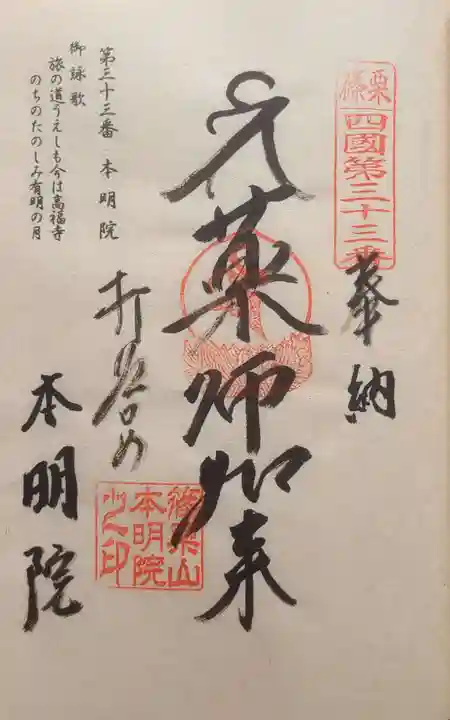 篠栗
四國第三十三番
奉納
薬師如来
打始め
本明院
篠栗山
本明院
之印
第三十三番 本明院
御詠歌
旅の道うえしも今は高福寺
のちのたのしみ有明の月